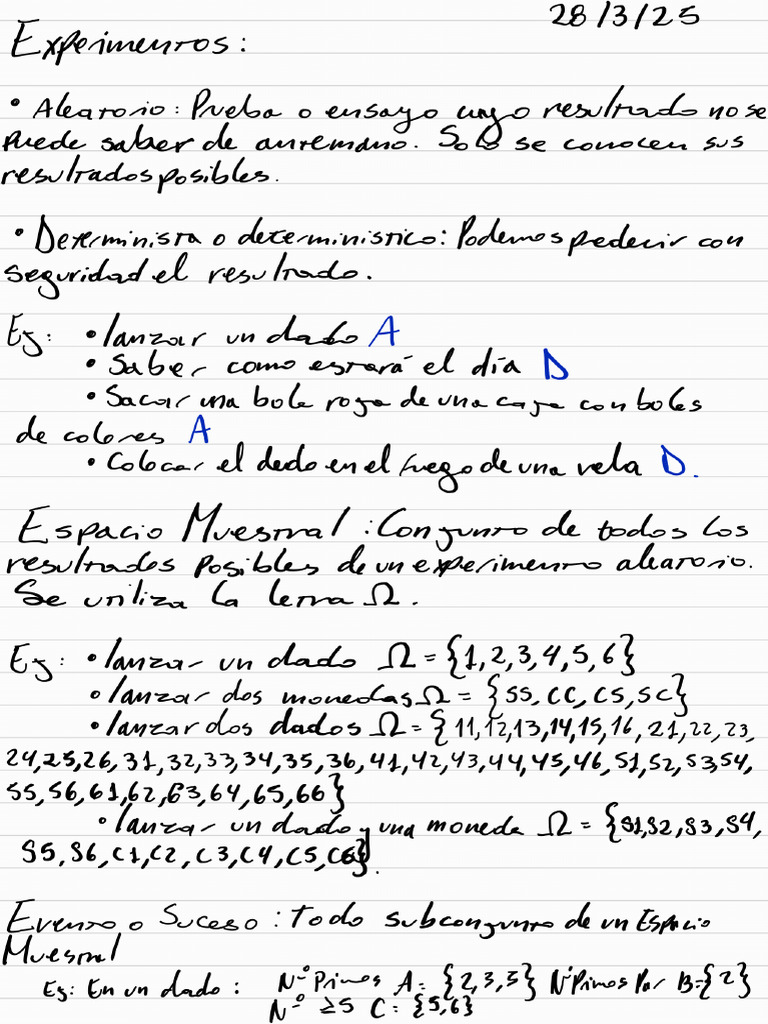 28/3/25
Experimentos:
• Aleatorio: Prueba o ensayo cuyo resultado no se
puede saber de antemano. Solo se conocen sus
resultados posibles.
• Determinista o deterministico: Podemos predecir con
seguridad el resultado.
Ej: • lanzar un dado A
• Saber como estará el día D
• Sacar una bola roja de una caja con boles
de colores A
• Colocar el dedo en el fuego de una vela D.
Espacio Muestral: Conjunto de todos los
resultados posibles de un experimento aleatorio.
Se utiliza la letra Ω.
Ej: • lanzar un dado Ω = {1,2,3,4,5,6}
• lanzar dos monedas Ω = {SS, CC, CS, SC}
• lanzar dos dados Ω = { 11,12,13,14,15,16,21,22,23,
24,25,26,31,32,33,34,35,36,41,42,43,44,45,46,51,52,53,54,
55,56,61,62,63,64,65,66}
• lanzar un dado y una moneda Ω = {S1,S2,S3,S4,
S5,S6,C1,C2,C3,C4,C5,C6}.
Evento o Suceso: Todo subconjunto de un Espacio
Muestral
Ej: En un dado: Nº Primos A = {2,3,5} Nº Primos Par B={2}
Nº ≥5 C = {5,6}